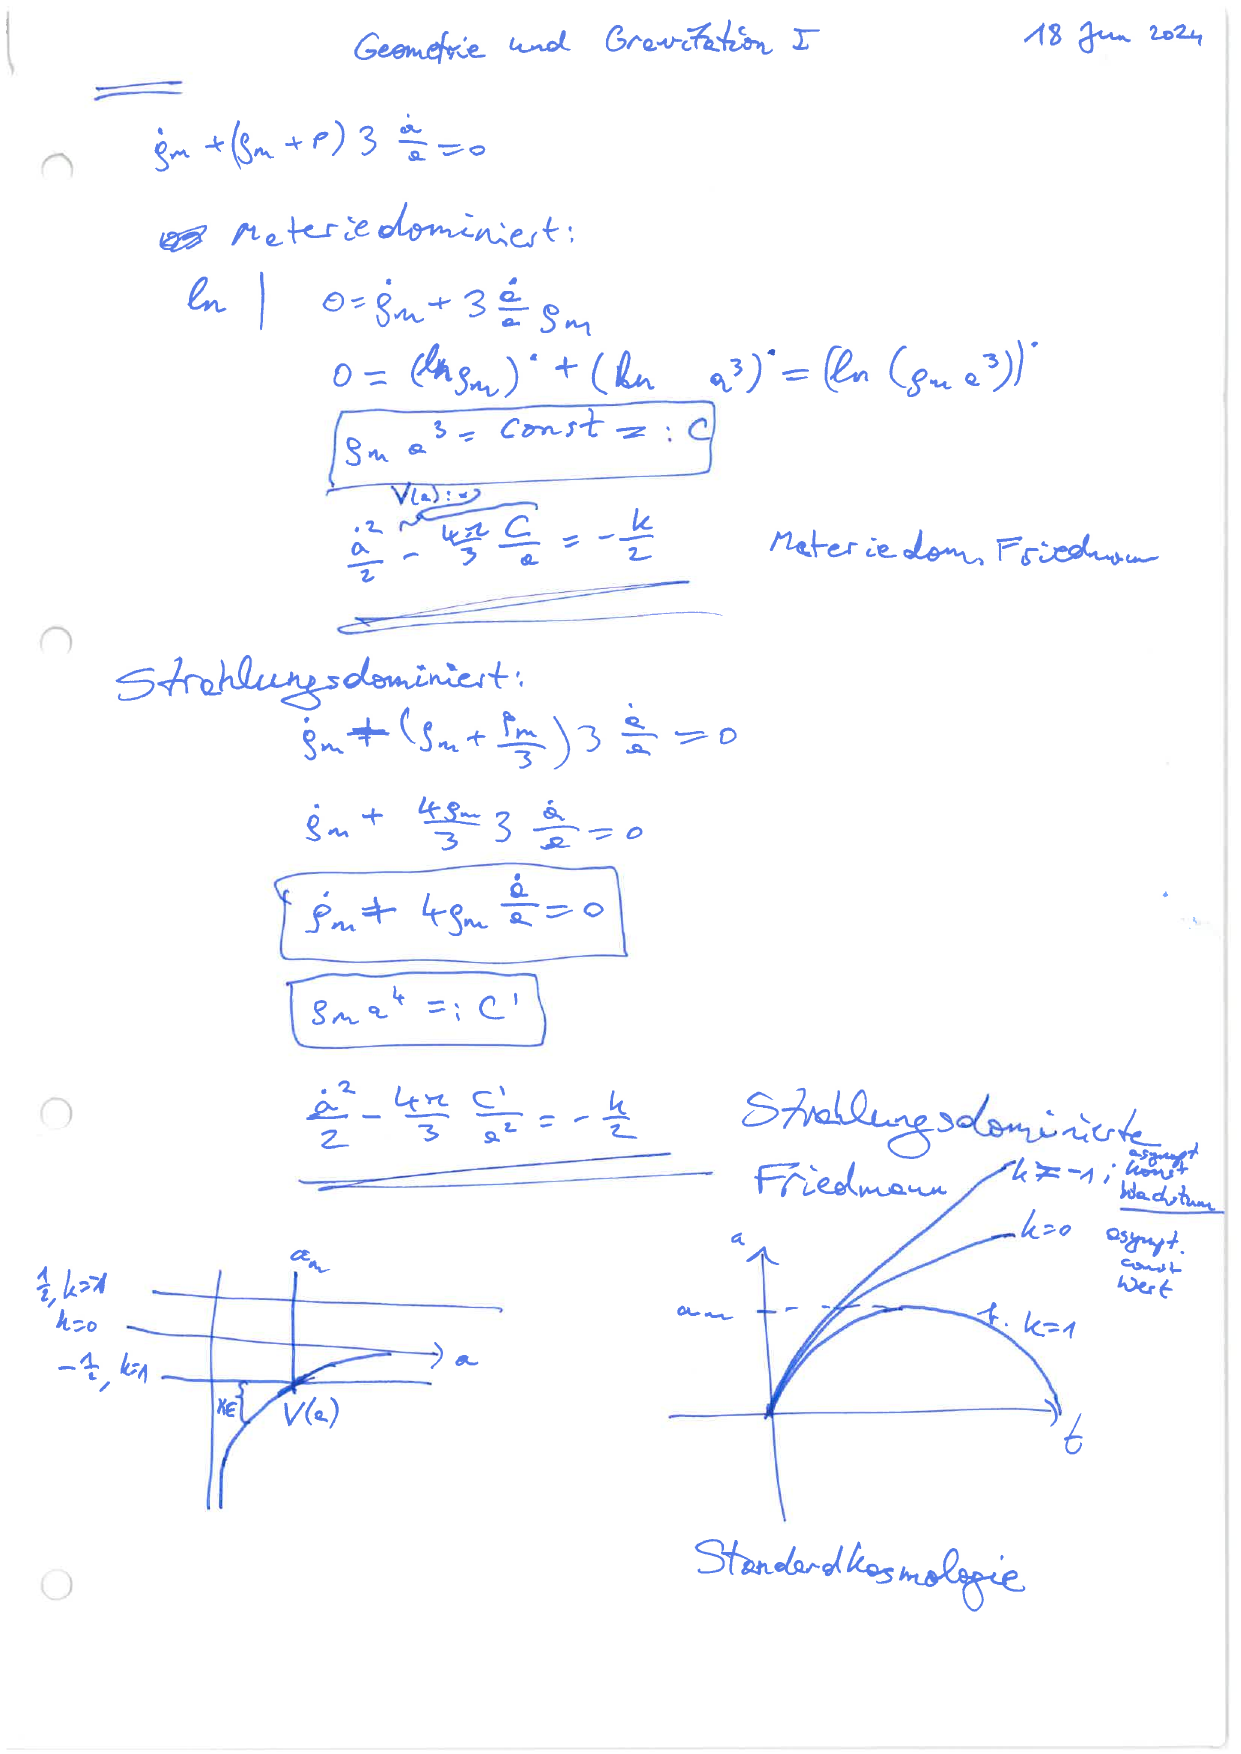 Geometrie und Gravitation I
18 Jun 2024
ρ̇m + (ρm + P) 3 ȧ/a = 0
Materiedominiert:
ln | 0 = ρ̇m + 3 ȧ/a ρm
0 = (ln ρm)˙ + (ln a³)˙ = (ln (ρm a³))˙
ρm a³ = const =: C
V(a) :=
ȧ²/2 - 4π/3 C/a = - k/2 Materiedom. Friedmann
Strahlungsdominiert:
ρ̇m + (ρm + ρm/3) 3 ȧ/a = 0
ρ̇m + 4ρm/3 3 ȧ/a = 0
ρ̇m + 4ρm ȧ/a = 0
ρm a⁴ =: C'
ȧ²/2 - 4π/3 C'/a² = - k/2
Strahlungsdominierte
Friedmann
k = -1; asympt
konst
Wachstum
k=0 asympt.
const
Wert
a
am
k=1
t
am
½, k=-1
k=0
a
-½, k=1
KE
V(a)
Standardkosmologie